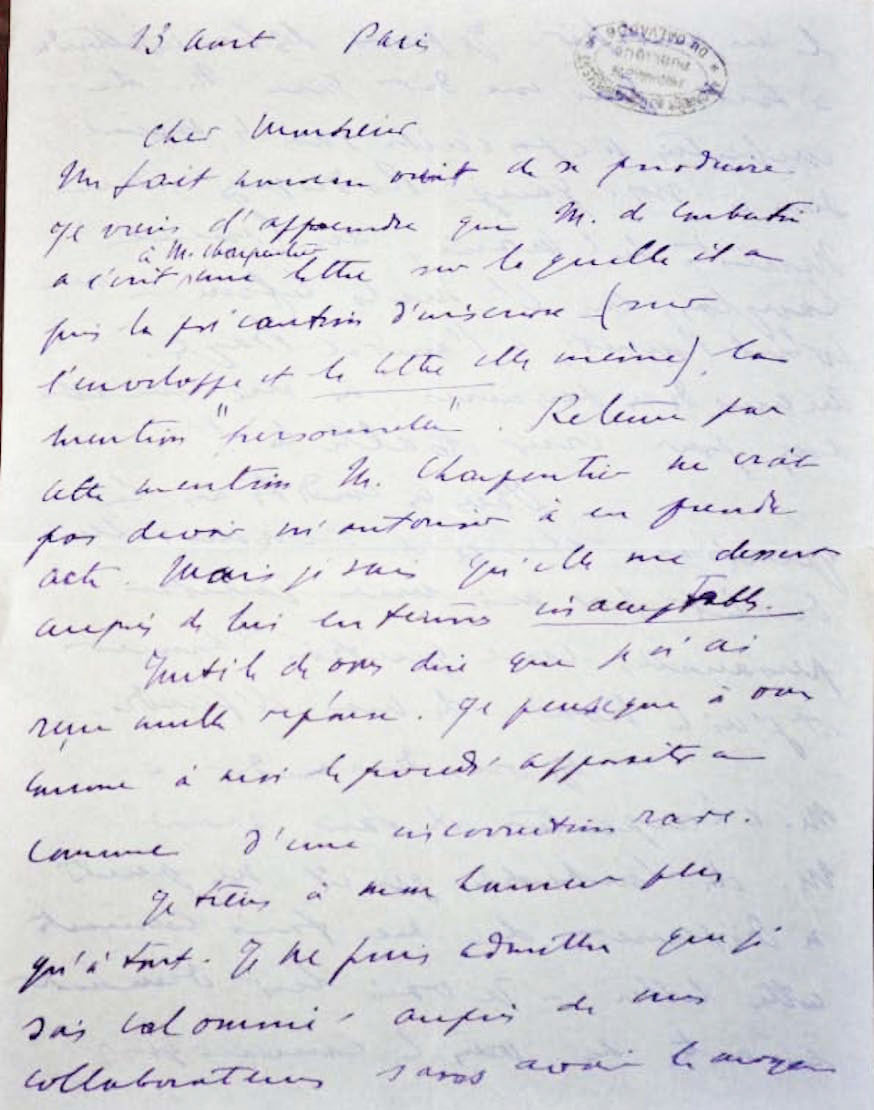 13 Aout Paris
DU CALVADOS
PUBLIQUE
Cher Monsieur
Un fait nouveau vient de se produire
Je viens d'apprendre que M. de
à M. Charpentier
a écrit une lettre sur laquelle il a
pris la précaution d'inscrire (sur
l'enveloppe et la lettre elle même), la
mention "personnelle". Retenu par
cette mention M. Charpentier ne croit
pas devoir m'autoriser à en prendre
acte. Mais je sais qu'elle me dessert
auprès de lui en termes inacceptables.
Inutile de vous dire que je n'ai
reçu nulle réponse. Je pense que à vous
comme à moi le procédé apparaîtra
comme d'une incorrection rare.
Je tiens à mon honneur plus
qu'à tout. Je ne puis admettre que je
sois calomnié auprès de mes
collaborateurs sans avoir le moyen